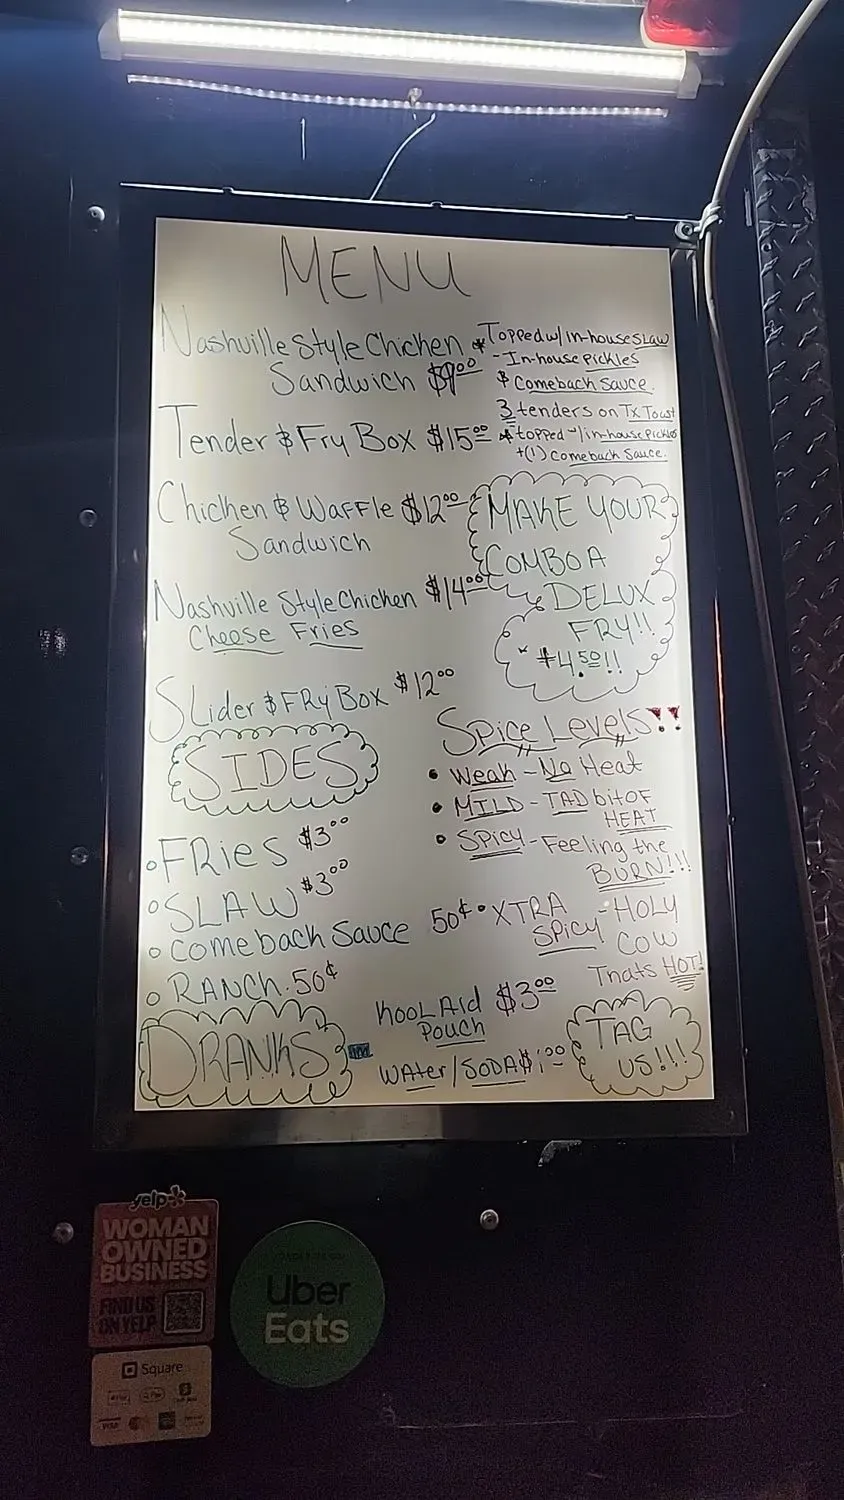 MENU
Nashville Style Chicken
Sandwich $9.00
* Topped w/ in-house SLAW
- In-house pickles
& Comeback Sauce.
Tender & Fry Box $15.00
3 tenders on Tx Toast
* topped w/ in-house pickles
+(1) Comeback Sauce.
Chicken & Waffle $12.00
Sandwich
MAKE YOUR
COMBO A
DELUX
FRY!!
+4.50!!
Nashville Style Chicken $14.00
Cheese Fries
Slider & FRy Box $12.00
Spice Levels!!
• Weak - No Heat
• MILD - TAD bit OF
HEAT
• SPICY - Feeling the
BURN!!!
• XTRA - HOLY
SPICY COW
Thats HOT!
SIDES
• FRies $3.00
• SLAW $3.00
• Comeback Sauce 50¢
• RANCH. 50¢
DRANKS
KOOL AId $3.00
Pouch
WAter/SODA $1.00
TAG
US!!!
yelp
WOMAN
OWNED
BUSINESS
FIND US
ON YELP
Uber
Eats
Square
Pay
G Pay
VISA